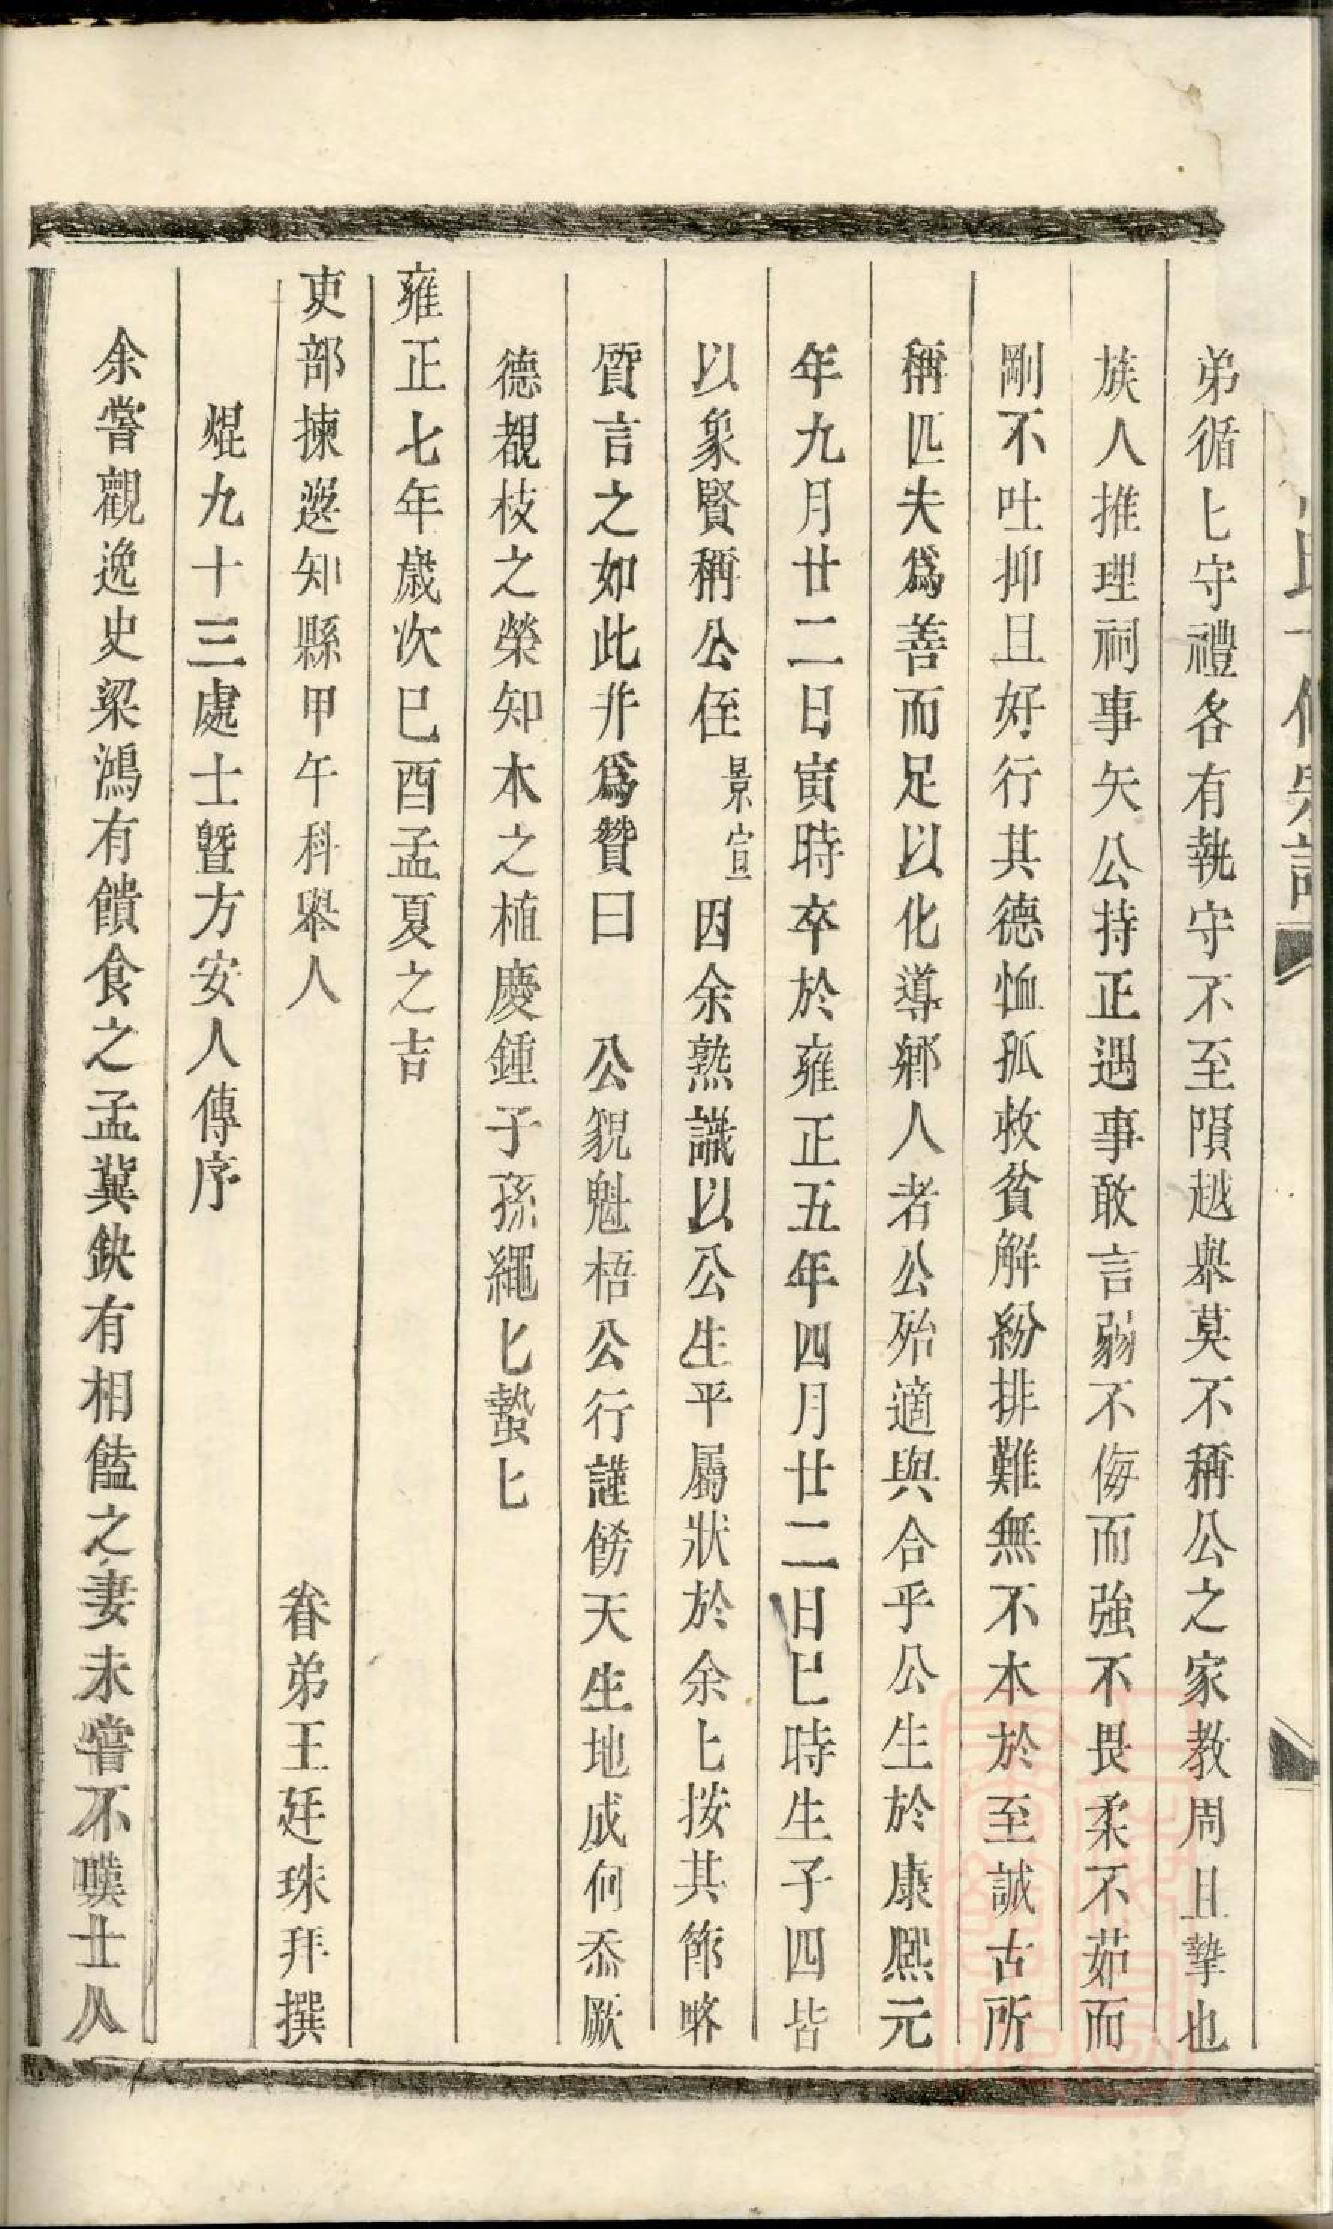 弟循匕守禮各有執守不至隕越舉莫不稱公之家教周且摯也
族人推理祠事矢公持正遇事敢言弱不侮而強不畏柔不茹而
剛不吐抑且好行其德恤孤救貧解紛排難無不本於至誠古所
稱匹夫爲善而足以化導鄉人者公殆適與合乎公生於康熙元
年九月廿二日寅時卒於雍正五年四月廿二日巳時生子四皆
以象賢稱公侄景宣因余熟識以公生平屬狀於余匕按其節略
質言之如此并爲贊曰　公貌魁梧公行謹飭天生地成何忝厥
德覩枝之榮知木之植慶鍾子孫繩匕蟄匕
雍正七年歲次巳酉孟夏之吉
吏部揀選知縣甲午科舉人　眷弟王廷珠拜撰
焜九十三處士暨方安人傳序
余嘗觀逸史梁鴻有饋食之孟冀缺有相饁之妻未嘗不嘆士人